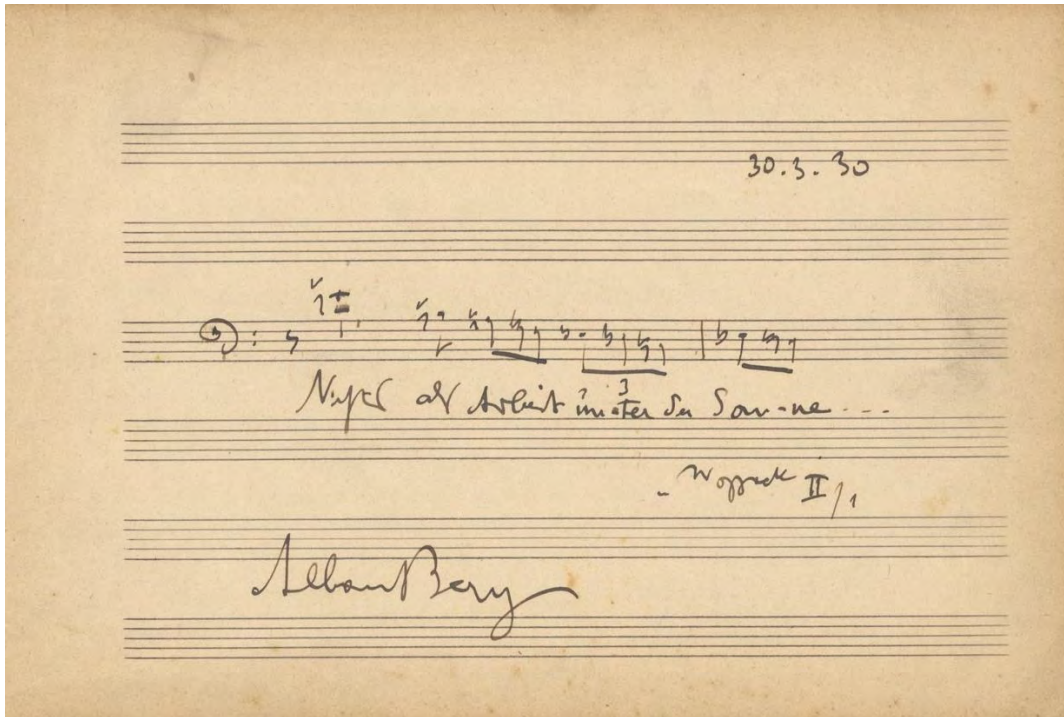 30.3.30
Nichts als Arbeit unter der Son-ne...
3
Wozzeck II/1
Alban Berg